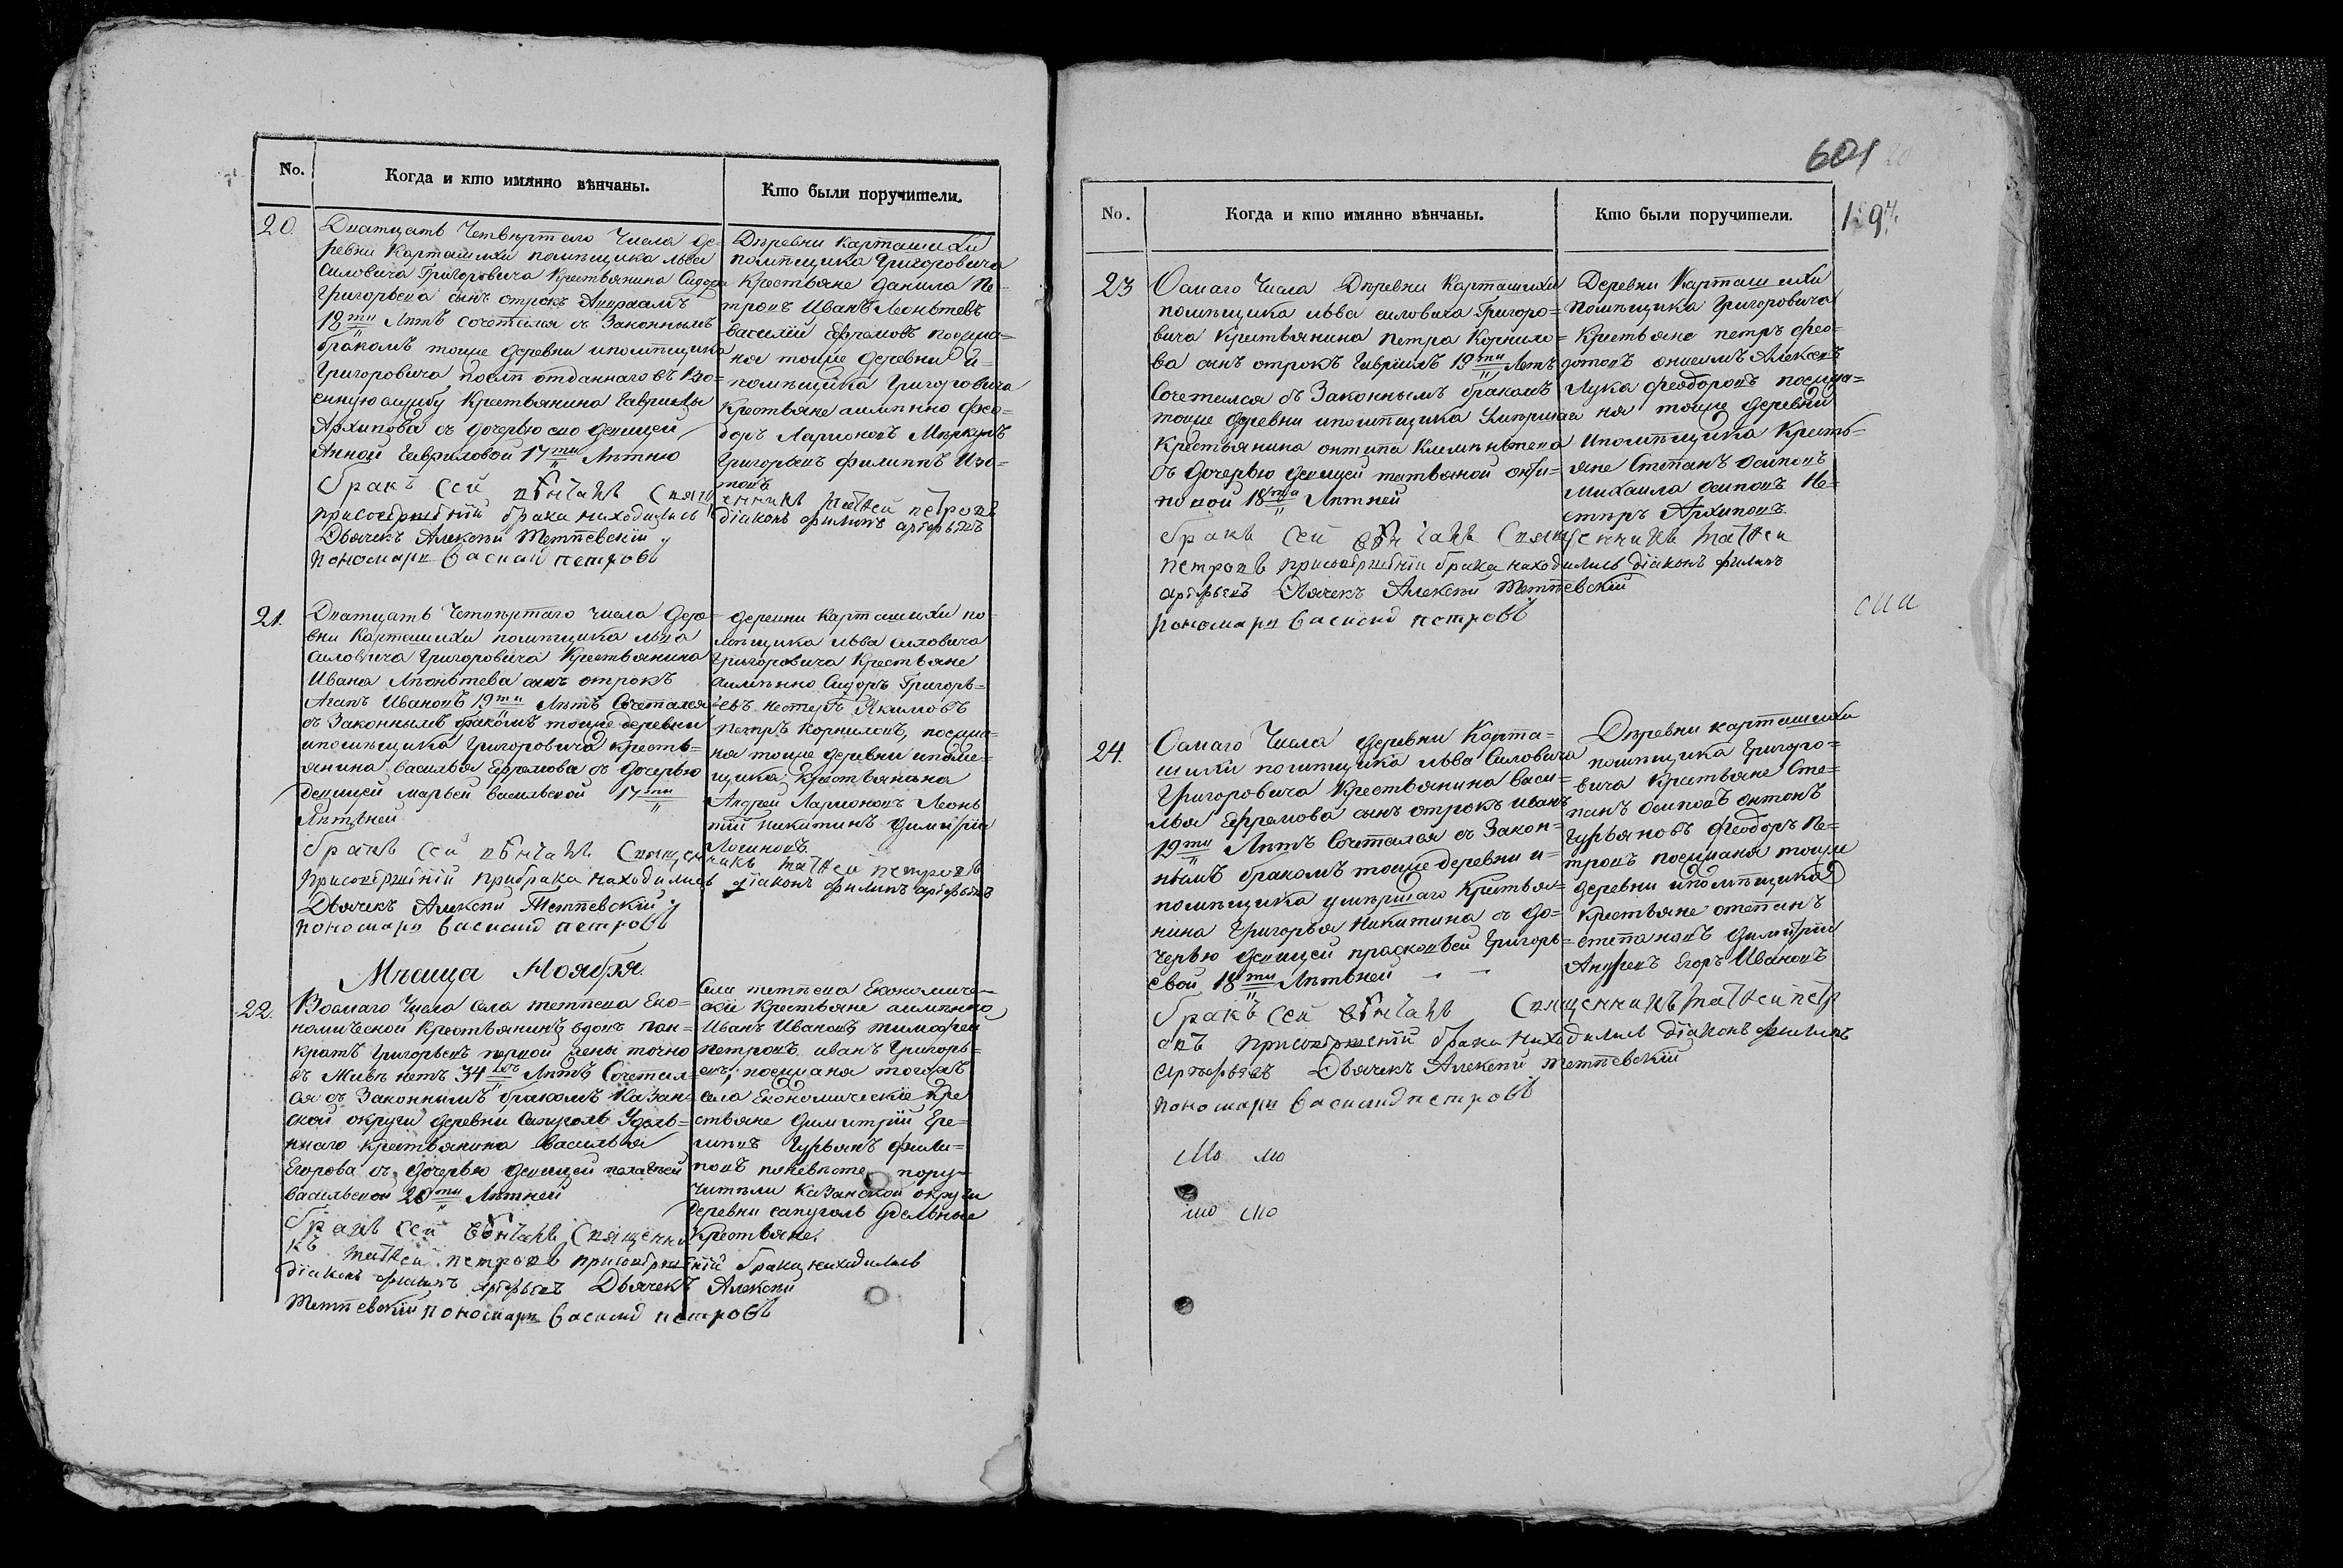 No.
Когда и кто имянно вѣнчаны.
Кто были поручители.
20.
Дватцать Четвертаго Числа де-
ревни Карташихи помѣщика Льва
Силовича Григоровича Крестьянина Сидора
Григорьева сынъ отрокъ
18ти Лѣтъ сочетался съ Законнымъ
бракомъ тоиже деревни ипомѣщика
Григоровича послѣ отданнаго въ
службу Крестьянина Гаврилы
Архипова съ дочерью ево девицей
Анной Гавриловой 17ти Лѣтнею
бракъ сей вѣнчалъ Свящ
присовершенiи брака находились
Дьячекъ Алексѣй Тетѣевскiй
пономарь Василий петровъ
Деревни Карташихи
помѣщика Григоровича
Крестьяне Данила Пе-
тровъ Иванъ Леоньтевъ
Василiй Ефремовъ поженихѣ
Крестьяне аимянно Фео-
доръ Ларионовъ Меркулъ
Григорьевъ Филиппъ Изо-
товъ
енникъ Матѳей петровъ
дiаконъ филипъ арефьевъ
21.
Дватцать Четвертаго числа дере-
вни Карташихи помѣщика Льва
Силовича Григоровича Крестьянина
Ивана Леоньтева сынъ отрокъ
Агапъ Ивановъ 19ти Лѣтъ Сочетался
съ Законнымъ бракомъ тоиже деревни
ипомѣщика Григоровича кресть-
янина Василья Ефремова съ дочерью
девицей Марьей Васильевой 17ти
Лѣтьней
бракъ сей вѣнчалъ Священ
присовершенiи прибрака находились
Дьячекъ Алексѣй Тетѣевскiй
пономарь Василий петровъ
деревни Карташихи по-
мѣщика Льва Силовича
Григоровича Крестьяне
аимянно Сидоръ Григорь-
евъ Нестеръ Якимовъ
Петръ Корниловъ,
тоиже деревни ипоме-
щика Крестьянина
Андрей Ларионовъ Леонь
тiй Никитинъ Димитрiй
Логиновъ.
никъ Матѳей петровъ
дiаконъ филипъ арефьевъ
Мѣсяца Ноября.
22.
Восмаго Числа села Тетѣева Еко-
номической Крестьянинъ вдовъ Пан-
кратъ Григорьевъ первой жены точно
въ Живѣ нетъ 34хъ Лѣтъ Сочетал-
ся съ Законнымъ бракомъ Казан-
ской округи деревни Сапуголь Удель-
ннаго крестьянина Василья
Егорова съ дочерью девицей пелагеей
Васильевой 20ти Лѣтней
бракъ сей вѣнчалъ Священни
къ Матѳей петровъ присовершенiи брака находились
дiаконъ филипъ арефьевъ Дьячекъ Алексѣй
Тетѣевскiй пономарь Василий петровъ
Села Тетѣева Економиче-
скiе Крестьяне аимянно
Иванъ Ивановъ Тимофей
петровъ иванъ Григорь-
евъ,
села Економическiе Кре
стьяне Димитрiй Ере-
мѣевъ Гурьянъ Фили-
повъ поневѣсте пору-
чители Казанской округи
деревни сапуголь уделные
Крестьяне.
601
No.
Когда и кто имянно вѣнчаны.
Кто были поручители.
23
Осмаго Числа Деревни Карташихи
помѣщика Льва Силовича Григоро-
вича Крестьянина Петра Корнило-
ва сынъ отрокъ Гаврiилъ 19ти Лѣтъ
Сочетался съ Законнымъ бракомъ
тоиже деревни ипомѣщика Умершаго
Крестьянина антипа Климѣнтева
съ дочерью девицей татьяной анти-
повой 18ти Лѣтней
бракъ сей вѣнчалъ Священникъ Матѳей
петровъ присовершенiи брака находились дiаконъ филипъ
арефьевъ Дьячекъ Алексѣй Тетѣевскiй
пономарь Василий петровъ
Деревни Карташихи
помѣщика Григоровича
Крестьяне петръ фео-
дотовъ анисимъ Алексѣевъ
Лука Феодоровъ
тоиже деревни
ипомѣщика Кресть-
яне Степанъ Осиповъ
Михаила Осиповъ Не-
стеръ Архиповъ
24.
Осмаго Числа деревни Карта-
шихи помѣщика Льва Силовича
Григоровича Крестьянина Васи-
лья Ефремова сынъ отрокъ Иванъ
19ти Лѣтъ Сочетался съ Закон-
нымъ бракомъ тоиже деревни и-
помѣщика умершаго Крестья-
нина Григорья Никитина съ до-
черью девицей прасковьей Григорь-
евой 18ти Лѣтьней
бракъ сей вѣнчалъ Священникъ Матѳей петр
овъ присовершенiи брака находились дiаконъ филипъ
арефьевъ Дьячекъ Алексѣй Тетѣевскiй
пономарь Василий петровъ
Деревни карташихи
помѣщика Григоро-
вича Крестьяне Сте-
панъ Осиповъ Антонъ
Гурьяновъ Феодоръ Пе-
тровъ тоиже
деревни ипомѣщика
Крестьяне степанъ
степановъ Димитрiй
Андреевъ Егоръ Ивановъ